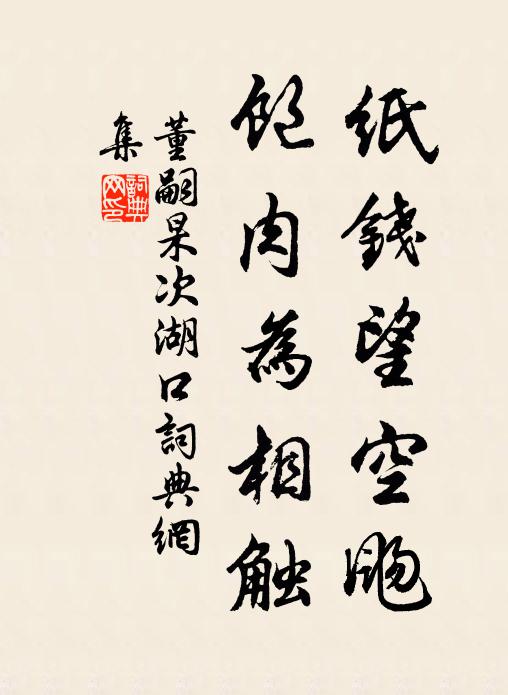 紙錢望空颺
飽肉為相触
董嗣杲次湖口詞典網
集
詞典
网印